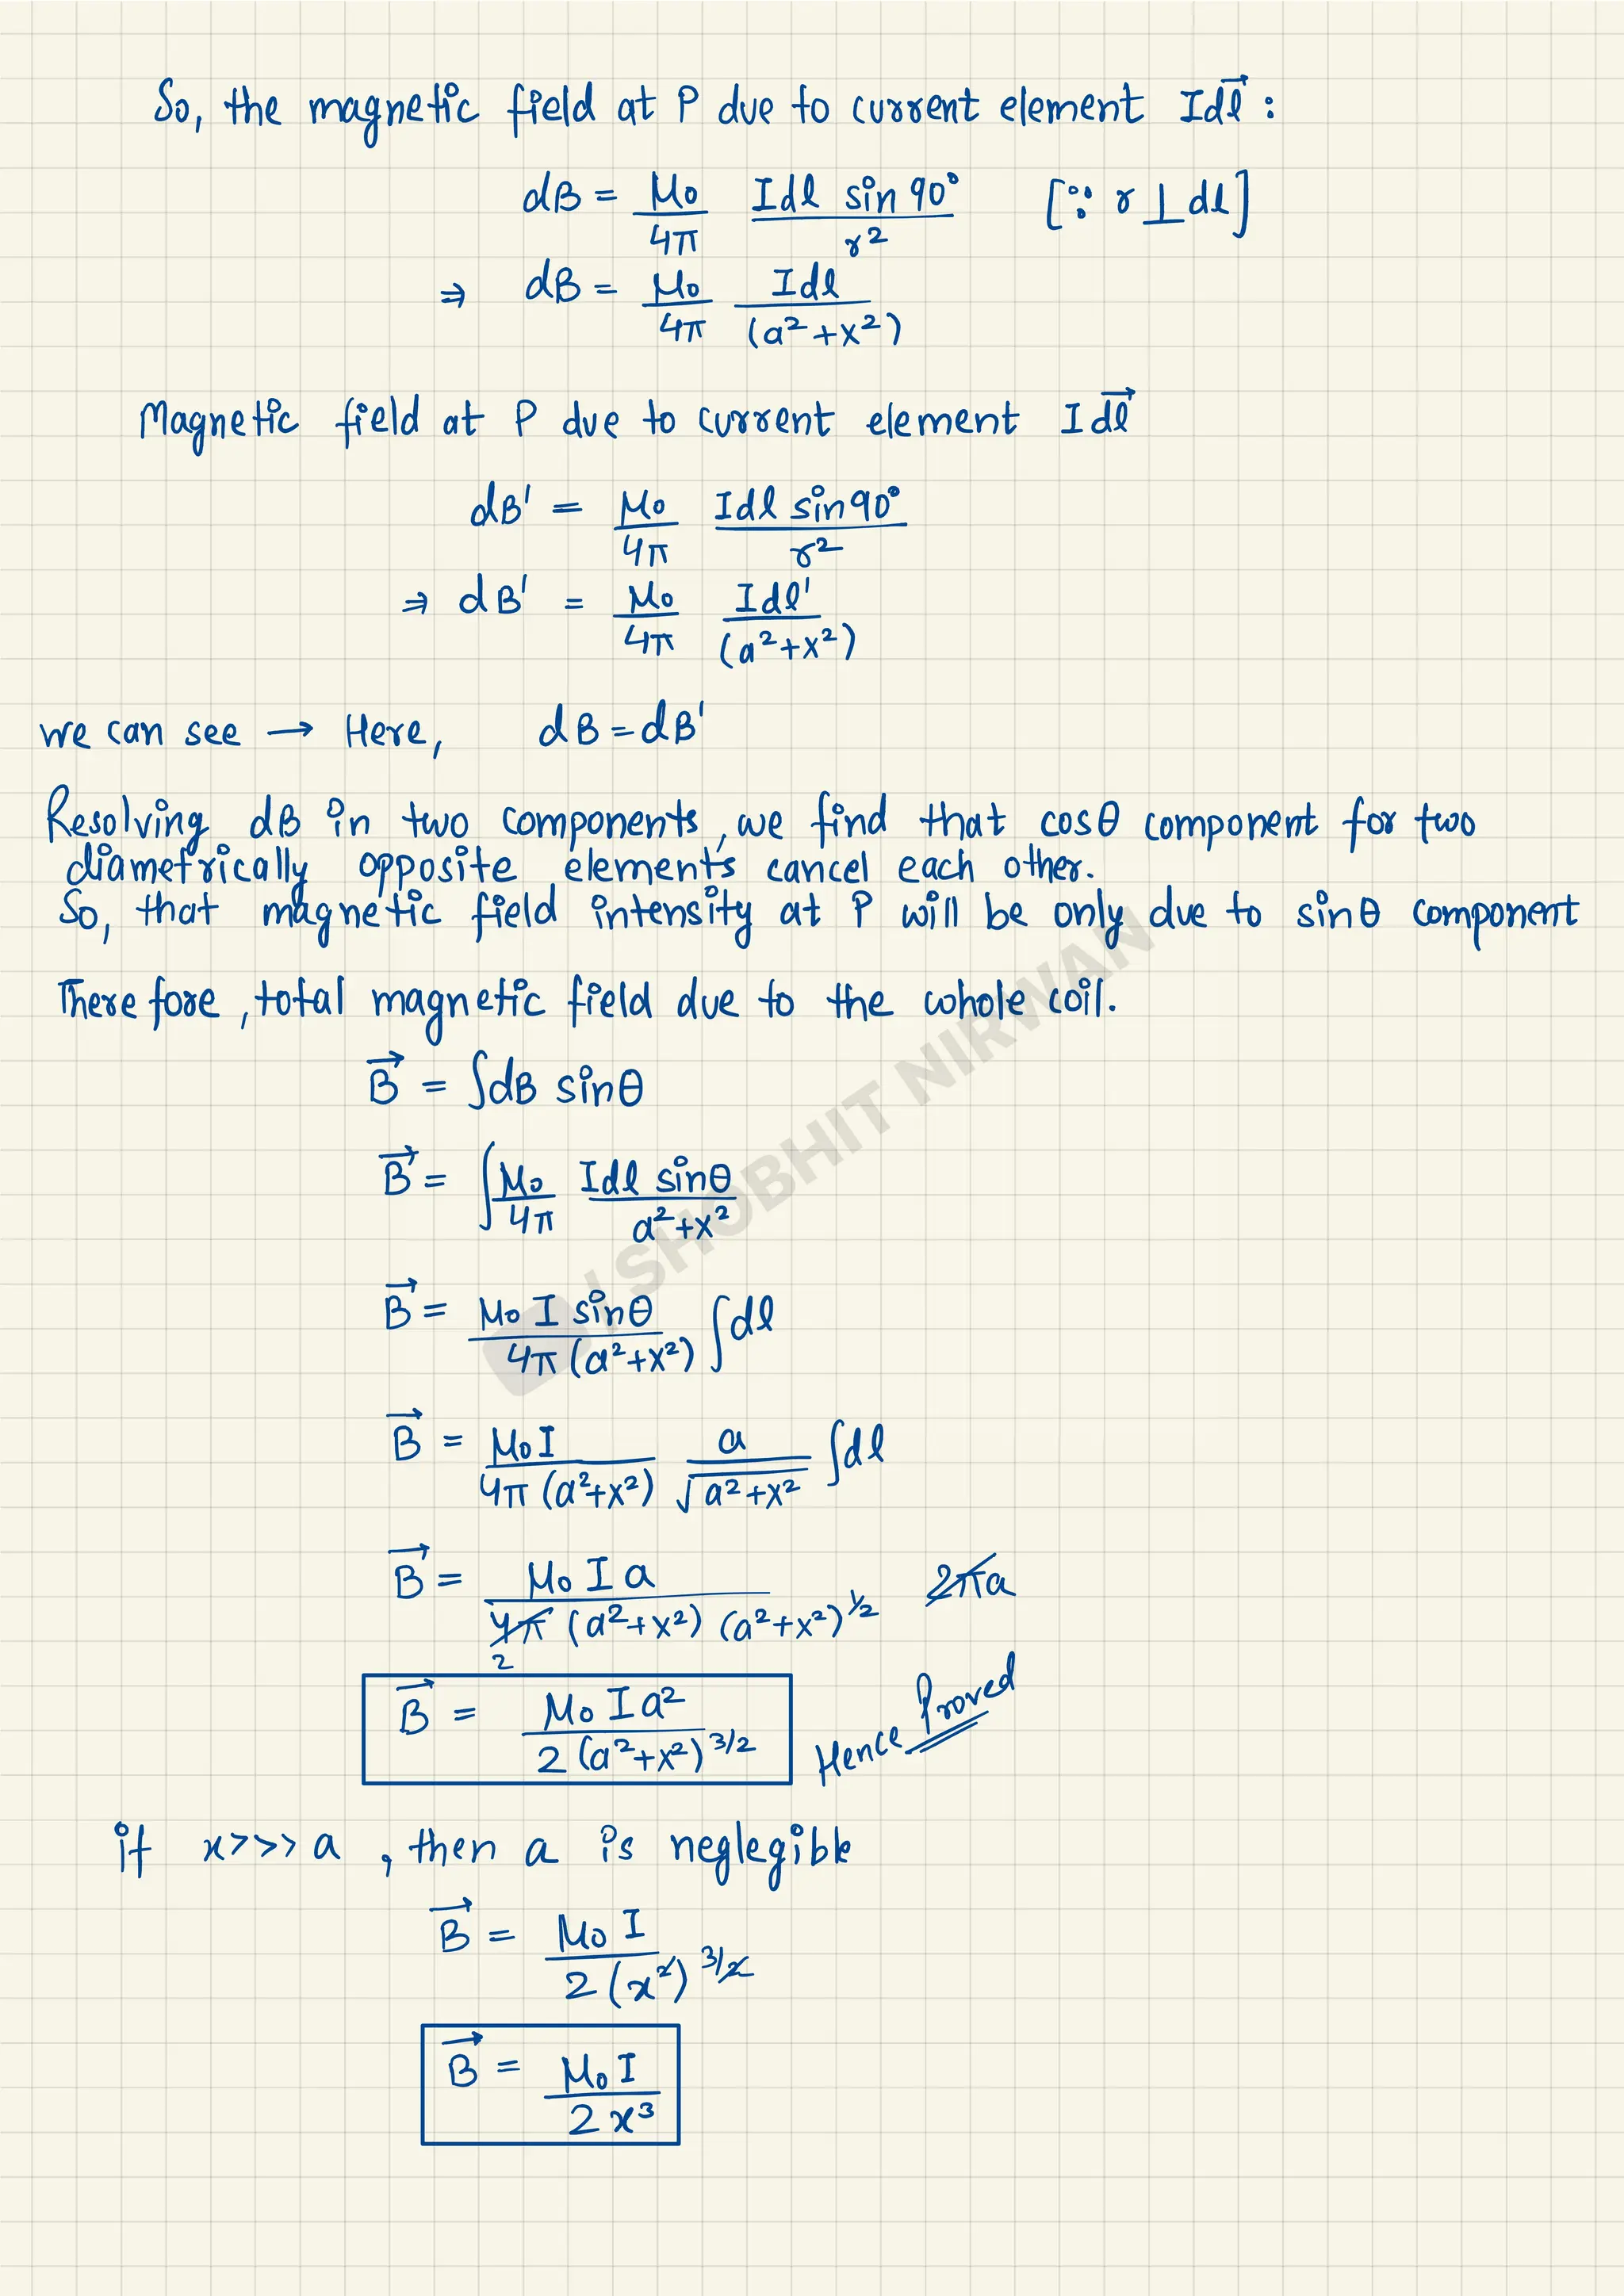 So, the magnetic field at P due to current element Idl⃗ :
dB = μ₀/4π Idl sin 90°/r² [∵ r ⊥ dl]
⇒ dB = μ₀/4π Idl/(a²+x²)
Magnetic field at P due to current element Idl⃗
dB' = μ₀/4π Idl sin90°/r²
⇒ dB' = μ₀/4π Idl'/(a²+x²)
we can see → Here, dB = dB'
Resolving dB in two components, we find that cosθ component for two
diametrically opposite elements cancel each other.
So, that magnetic field intensity at P will be only due to sinθ component
There fore, total magnetic field due to the whole coil.
B⃗ = ∫dB sinθ
B⃗ = ∫ μ₀/4π Idl sinθ/a²+x²
B⃗ = μ₀ I sinθ/4π (a²+x²) ∫dl
B⃗ = μ₀I/4π (a²+x²) a/√a²+x² ∫dl
B⃗ = μ₀ I a/4π (a²+x²) (a²+x²)^1/2 2πa
2
B⃗ = μ₀ I a²/2 (a²+x²)^3/2 Hence Proved
if x>>> a , then a is neglegible
B⃗ = μ₀ I/2 (x²)^3/2
B⃗ = μ₀ I/2 x³
/ SHOBHIT NIRWAN